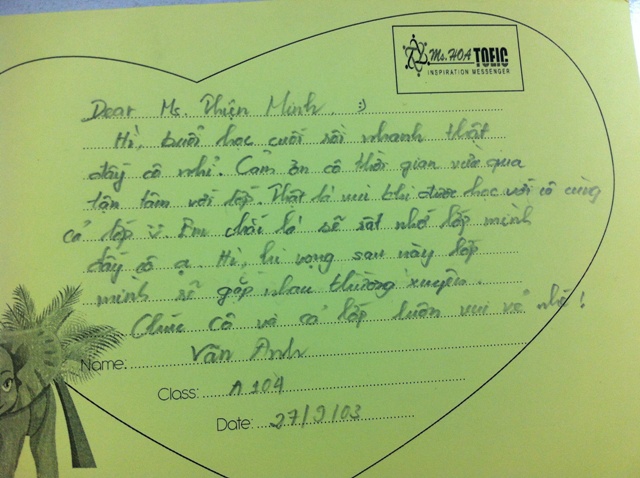 Ms. HOA TOEIC
INSPIRATION MESSENGER
Dear Ms. Thiện Minh. :)
Hì, buổi học cuối rồi nhanh thật
đấy cô nhỉ. Cảm ơn cô thời gian vừa qua
tận tâm với lớp. Thật là vui khi được học với cô cùng
cả lớp ạ. Em chắc là sẽ rất nhớ lớp mình
đấy cô ạ. Hì, hi vọng sau này lớp
mình sẽ gặp nhau thường xuyên.
Chúc cô và cả lớp luôn vui vẻ nhé!
Name: Vân Anh
Class: A104
Date: 27/9/03